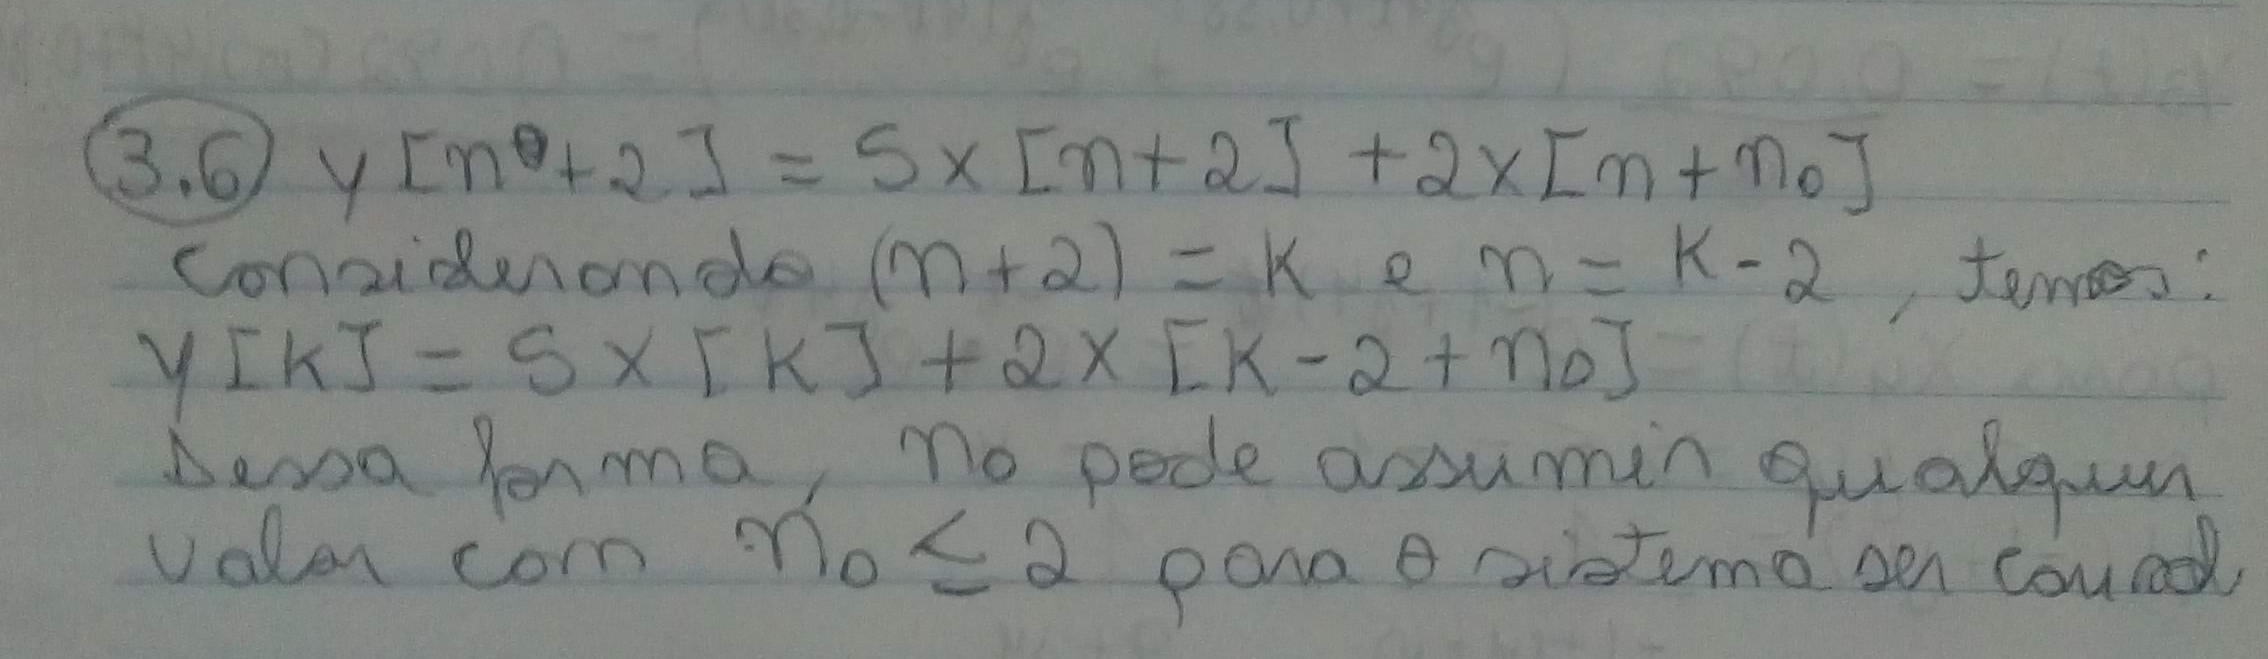 3.6 y[n+2] = 5x[n+2] + 2x[n+n₀]
Considerando (n+2) = K e n = K-2, temos:
y[K] = 5x[K] + 2x[K-2+n₀]
Dessa forma, n₀ pode assumir qualquer
valor com n₀ ≤ 2 para o sistema ser causal